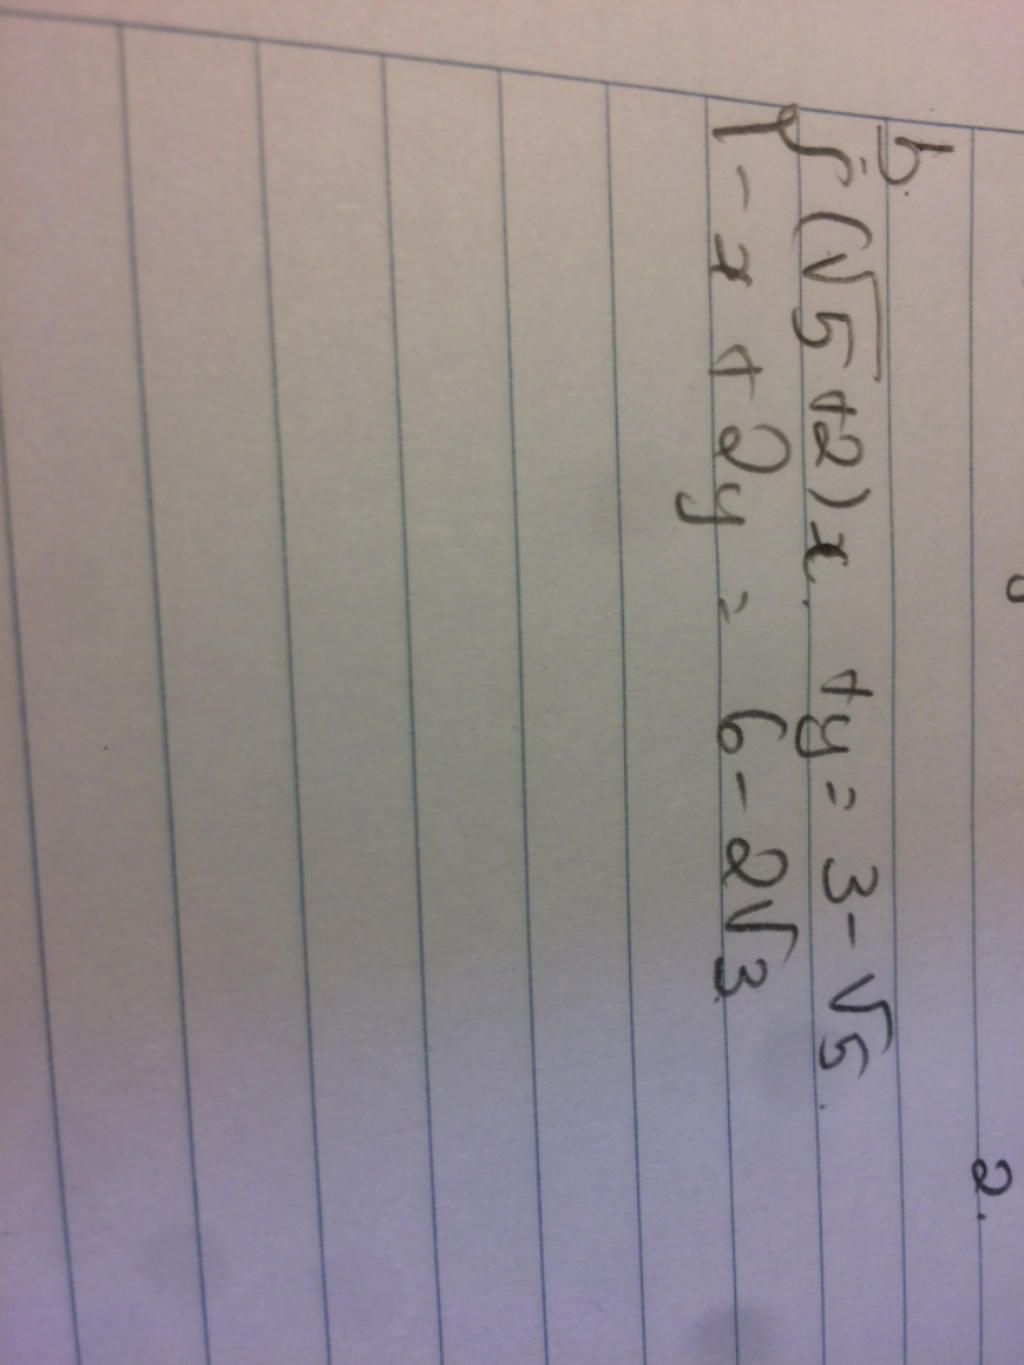 2.
b.
{ (√5 +2) x. +y = 3 - √5.
- x + 2y = 6 - 2√3